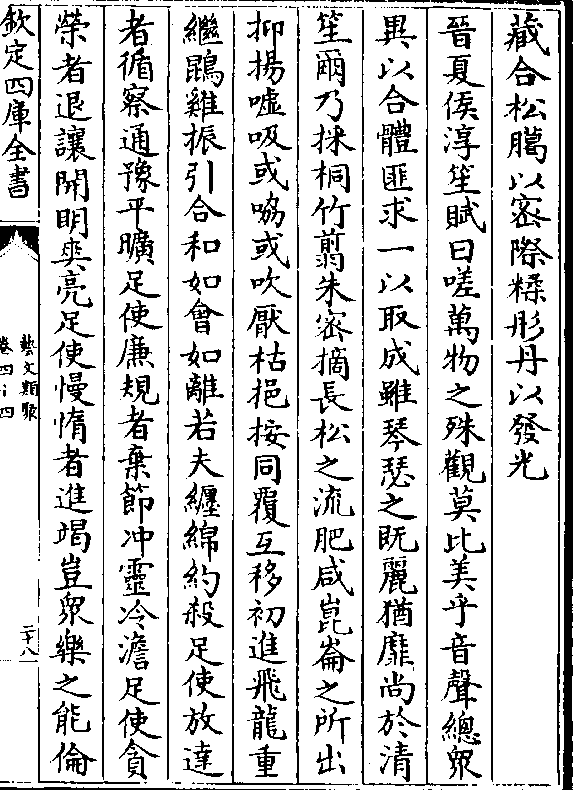 藏合松臈以密際糅彤丹以發光
晉夏侯淳笙賦曰嗟萬物之殊觀莫比美乎音聲總衆
異以合體匪求一以取成雖琴瑟之既麗猶靡尚於清
笙爾乃採桐竹翦朱密摘長松之流肥咸崑崙之所出
抑揚嘘吸或鳴或吹厭枯挹按同覆互移初進飛龍重
繼鵾雞振引合和如會如離若夫纏綿約殺足使放達
者循察通豫平曠足使廉規者棄節冲靈冷澹足使貪
榮者退讓開明爽亮足使慢惰者進竭豈衆樂之能倫
欽定四庫全書
藝文類聚
卷四十四
二十八